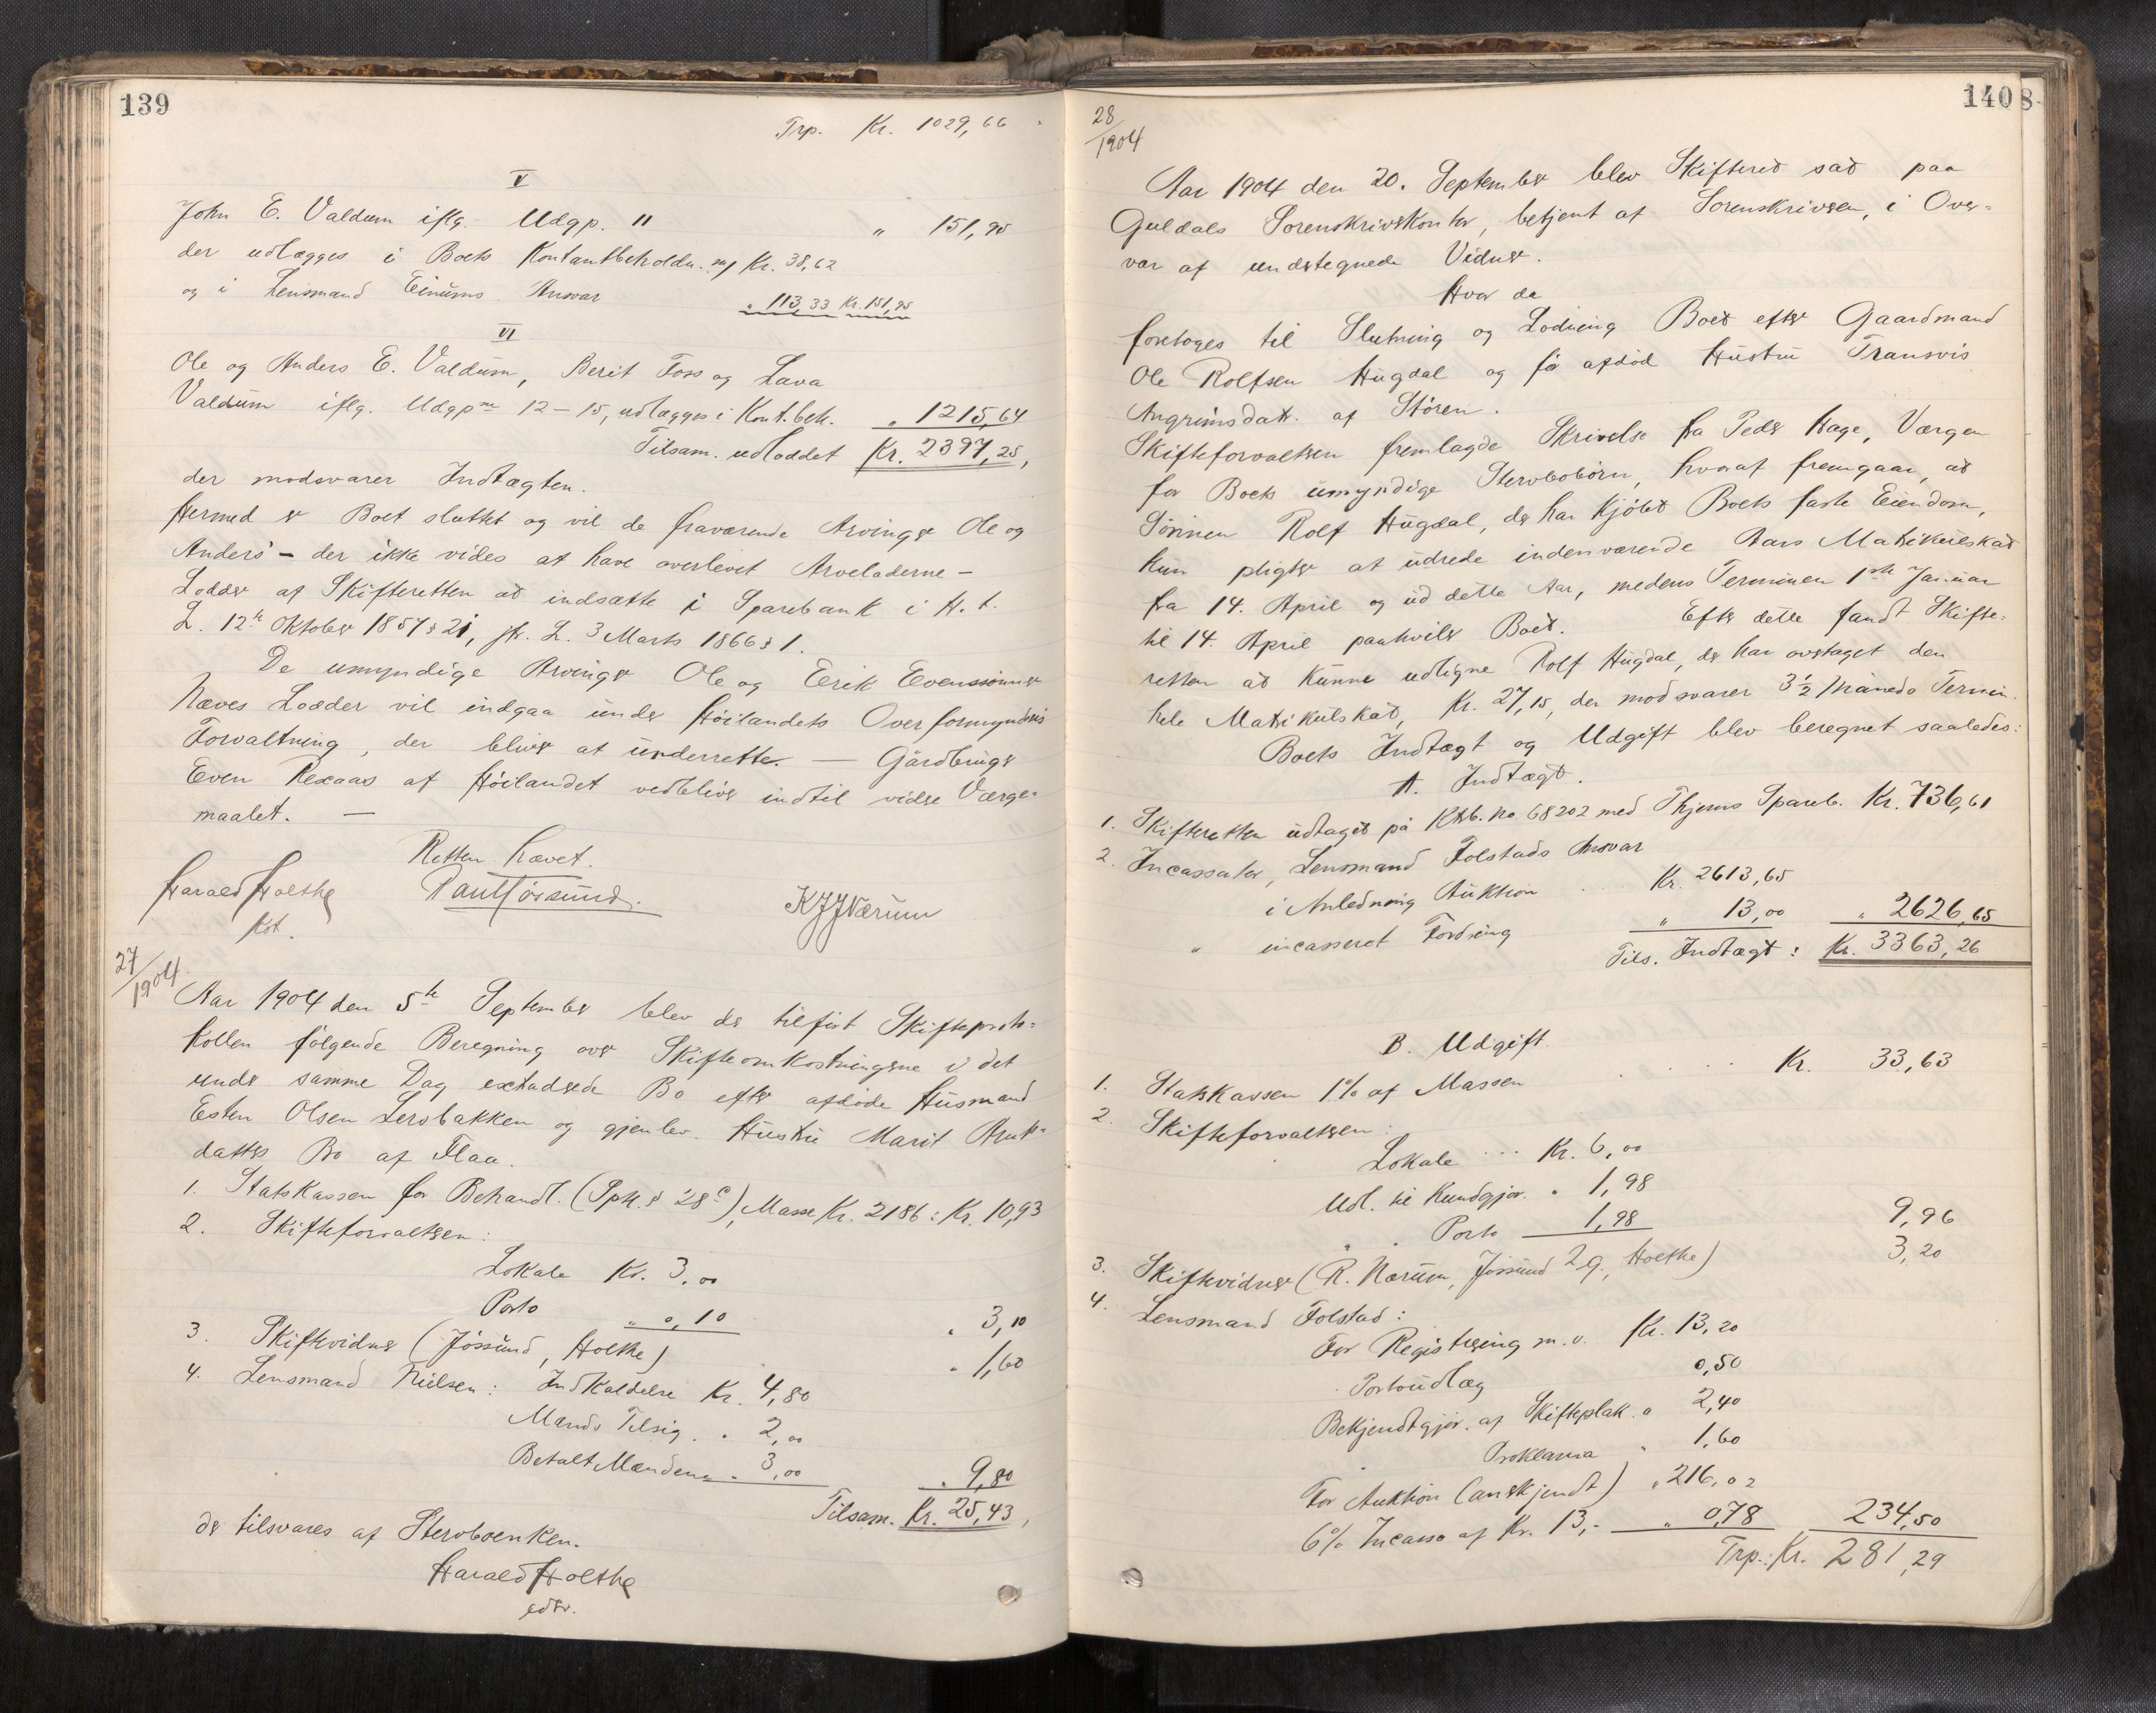 139
Trp. Kr. 1029,66
V
John E. Valdum iflg. Udgp. 11 " 151,95
der udlægges i Boets Kontantbeholdn. m/ Kr. 38,62
og i Lensmand Einums Ansvar " 113,33 Kr. 151,95
VI
Ole og Anders E. Valdum, Berit Foss og Lava
Valdum iflg. Udgpne 12-15, udlægges i Kont.beh. " 1215,64
Tilsam. udloddet Kr. 2397,25,
der modsvarer Indtægten.
Hermed er Boet sluttet og vil de fraværende Arvinger Ole og
Anders – der ikke vides at have overlevet Arveladerne –
Lodder af Skifteretten at indsætte i Sparebank i H. t.
L. 12te Oktober 1857 § 21, jfr. L. 3 Marts 1866 § 1.
De umyndige Arvinger Ole og Erik Evenssønner
Næves Lodder vil indgaa under Høilandets Overformynderis
Forvaltning, der bliver at underrette. — Gårdbruger
Even Rexaas af Høilandet vedbliver indtil videre Værge-
maalet. —
Retten hævet.
Harald Holthe Paul Jössund. K J J Værum
Kst.
27/1904
Aar 1904 den 5te September blev der tilført Skifteproto-
kollen følgende Beregning over Skifteomkostningerne i det
under samme Dag extraderede Bo efter afdøde Husmand
Esten Olsen Lersbakken og gjenlev. Hustru Marit Arnts-
datters Bo af Flaa.
1. Statskassen for Behandl. (Sptl. § 28c), Masse Kr. 2186: Kr. 10,93
2. Skifteforvalteren:
Lokale Kr. 3,00
Porto " 0,10 " 3,10
3. Skiftevidner (Jössund, Holthe) " 1,60
4. Lensmand Nielsen: Indkaldelse Kr. 4,80
Mænds Tilsig. " 2,00
Betalt Mændene " 3,00 " 9,80
Tilsam. Kr. 25,43,
der tilsvares af Stervboenken.
Harald Holthe
edsv.
1408
28/1904
Aar 1904 den 20. September blev Skifteret sat paa
Guldals Sorenskriverkontor, betjent af Sorenskriveren, i Over-
vær af undertegnede Vidner.
Hvor da
foretoges til Slutning og Lodning Boet efter Gaardmand
Ole Rolfsen Hugdal og før afdød Hustru Transvis
Angrimsdatt. af Støren.
Skifteforvalteren fremlagde Skrivelse fra Peder Hage, Værge
for Boets umyndige Stervbobørn, hvoraf fremgaar, at
Sønnen Rolf Hugdal, der har kjøbt Boets faste Eiendom,
kun pligter at udrede indenværende Aars Matrikulskat
fra 14. April og ud dette Aar, medens Terminen 1ste Januar
til 14. April paahviler Boet. Efter dette fandt Skifte-
retten at kunne udligne Rolf Hugdal, der har overtaget den
hele Matrikulskat, Kr. 27,15, der modsvarer 3½ Måneds Termin.
Boets Indtægt og Udgift blev beregnet saaledes:
A. Indtægt.
1. Skifteretten udtaget på Ktrb. No. 68202 med Thjems Spareb. Kr. 736,61
2. Incassator, Lensmand Folstads Ansvar
i Anledning Auktion Kr. 2613,65
" incasseret Fordring " 13,00 " 2626,65
Tils. Indtægt: Kr. 3363,26
B. Udgift
1. Statskassen 1% af Massen Kr. 33,63
2. Skifteforvalteren:
Lokale ... Kr. 6,00
Udl. til Kundgjør. " 1,98
" " Porto 1,98 9,96
3. Skiftevidner (R. Nærum, Jössund 2 g., Holthe) 3,20
4. Lensmand Folstad:
For Registrering m. v. Kr. 13,20
Portoudlæg 0,50
Bekjendtgjør. af Skifteplak. " 2,40
Proklama " 1,60
For Auktion (anerkjendt) " 216,02
6% Incasso af Kr. 13,- " 0,78 234,50
Trp.: Kr. 281,29